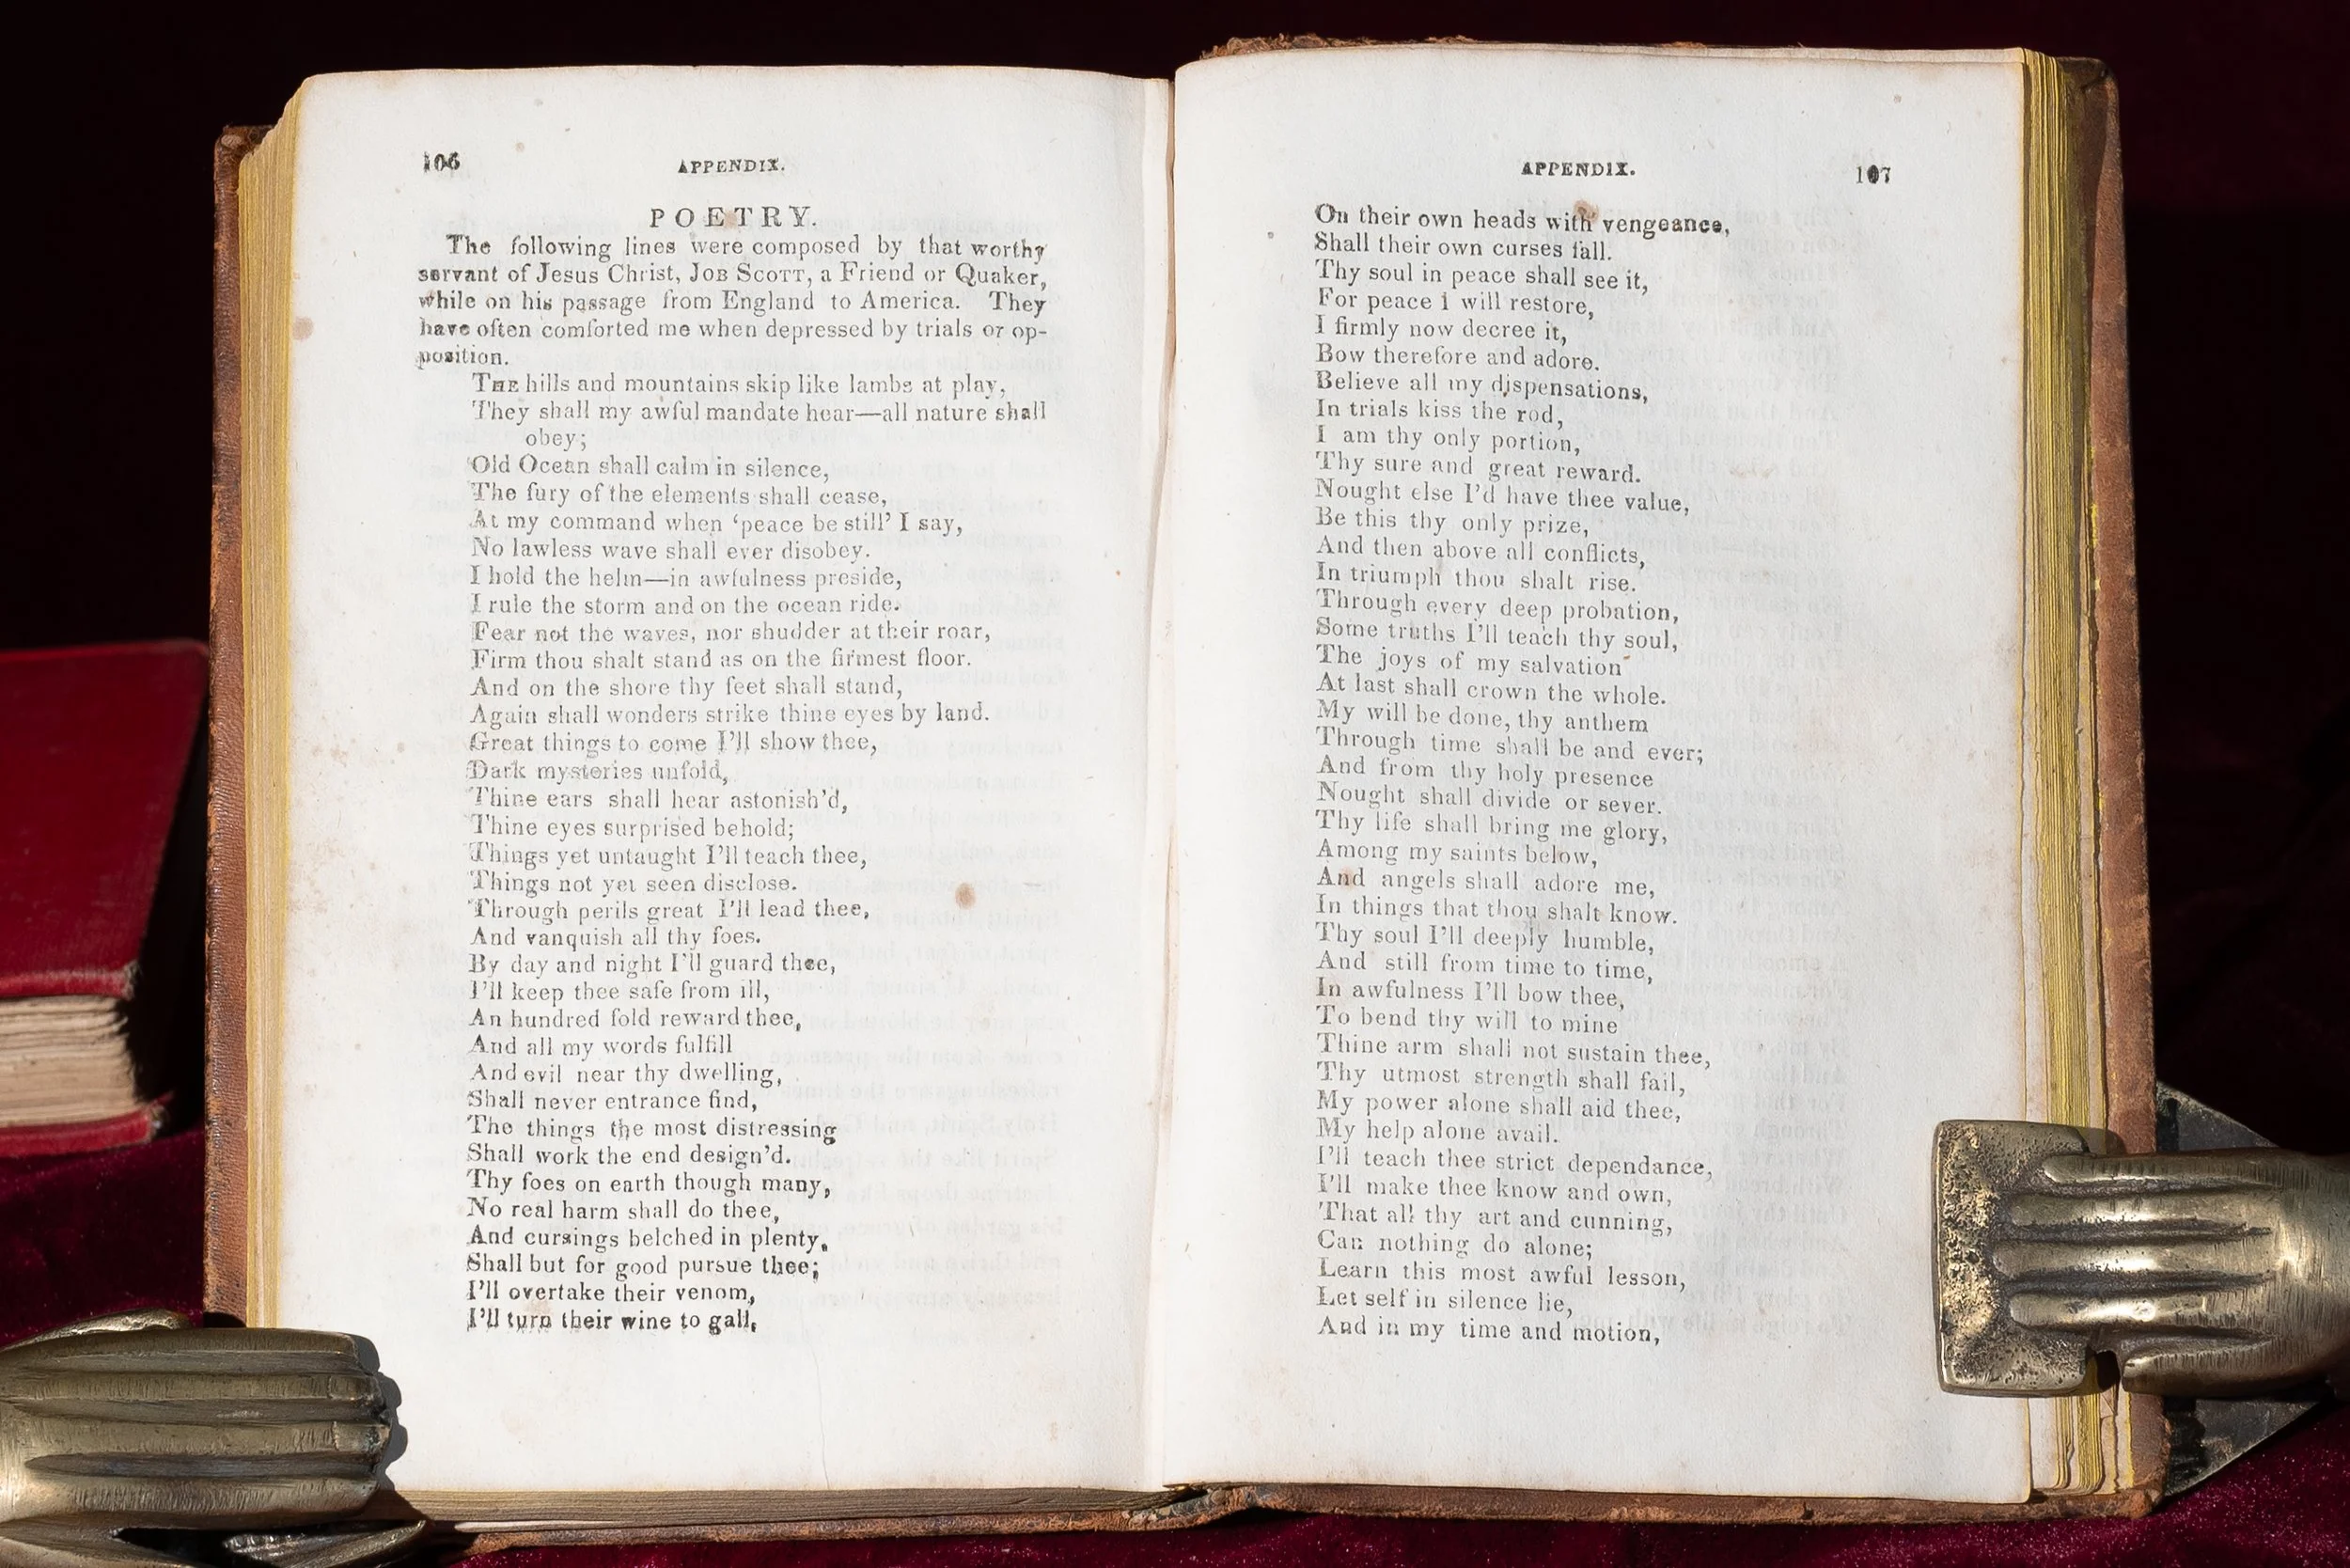 106
APPENDIX.
POETRY.
The following lines were composed by that worthy
servant of Jesus Christ, JOB SCOTT, a Friend or Quaker,
while on his passage from England to America. They
have often comforted me when depressed by trials or op-
position.
THE hills and mountains skip like lambs at play,
They shall my awful mandate hear—all nature shall
obey;
Old Ocean shall calm in silence,
The fury of the elements shall cease,
At my command when ‘peace be still’ I say,
No lawless wave shall ever disobey.
I hold the helm—in awfulness preside,
I rule the storm and on the ocean ride.
Fear not the waves, nor shudder at their roar,
Firm thou shalt stand as on the firmest floor.
And on the shore thy feet shall stand,
Again shall wonders strike thine eyes by land.
Great things to come I’ll show thee,
Dark mysteries unfold,
Thine ears shall hear astonish’d,
Thine eyes surprised behold;
Things yet untaught I’ll teach thee,
Things not yet seen disclose.
Through perils great I’ll lead thee,
And vanquish all thy foes.
By day and night I’ll guard thee,
I’ll keep thee safe from ill,
An hundred fold reward thee,
And all my words fulfill
And evil near thy dwelling,
Shall never entrance find,
The things the most distressing
Shall work the end design’d.
Thy foes on earth though many,
No real harm shall do thee,
And cursings belched in plenty,
Shall but for good pursue thee;
I’ll overtake their venom,
I’ll turn their wine to gall,
APPENDIX.
107
On their own heads with vengeance,
Shall their own curses fall.
Thy soul in peace shall see it,
For peace I will restore,
I firmly now decree it,
Bow therefore and adore.
Believe all my dispensations,
In trials kiss the rod,
I am thy only portion,
Thy sure and great reward.
Nought else I’d have thee value,
Be this thy only prize,
And then above all conflicts,
In triumph thou shalt rise.
Through every deep probation,
Some truths I’ll teach thy soul,
The joys of my salvation
At last shall crown the whole.
My will be done, thy anthem
Through time shall be and ever;
And from thy holy presence
Nought shall divide or sever.
Thy life shall bring me glory,
Among my saints below,
And angels shall adore me,
In things that thou shalt know.
Thy soul I’ll deeply humble,
And still from time to time,
In awfulness I’ll bow thee,
To bend thy will to mine
Thine arm shall not sustain thee,
Thy utmost strength shall fail,
My power alone shall aid thee,
My help alone avail.
I’ll teach thee strict dependance,
I’ll make thee know and own,
That all thy art and cunning,
Can nothing do alone;
Learn this most awful lesson,
Let self in silence lie,
And in my time and motion,